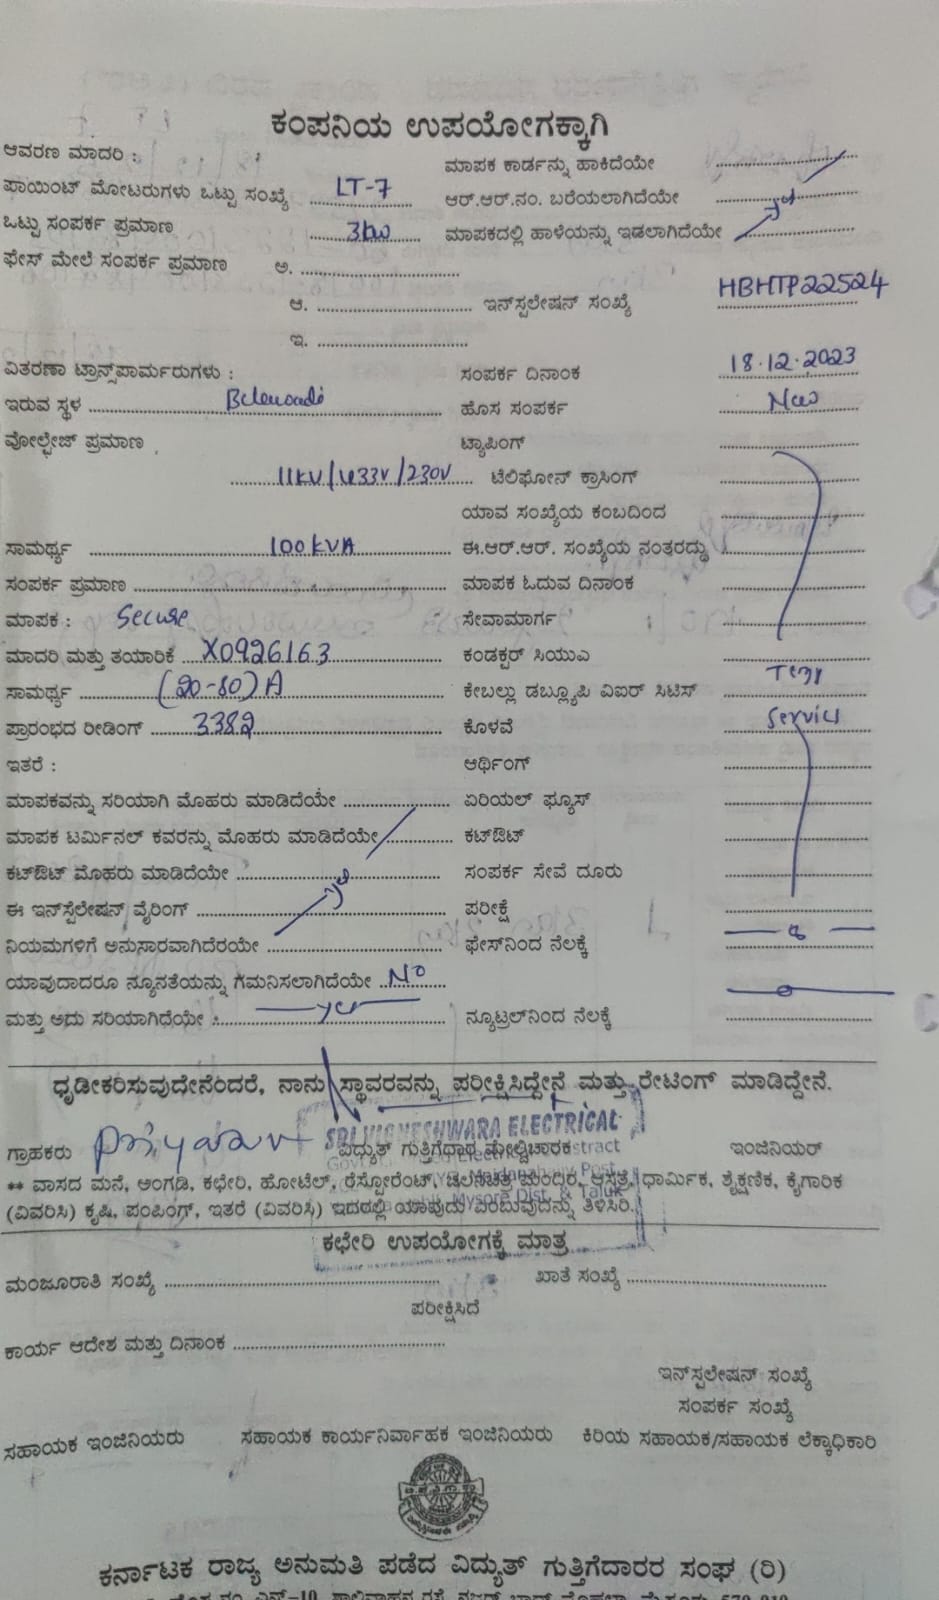 ಕಂಪನಿಯ ಉಪಯೋಗಕ್ಕಾಗಿ
ಆವರಣ ಮಾದರಿ : ಮಾಪಕ ಕಾರ್ಡನ್ನು ಹಾಕಿದೆಯೇ
ಪಾಯಿಂಟ್ ಮೋಟರುಗಳು ಒಟ್ಟು ಸಂಖ್ಯೆ LT-7 ಆರ್.ಆರ್.ನಂ. ಬರೆಯಲಾಗಿದೆಯೇ
ಒಟ್ಟು ಸಂಪರ್ಕ ಪ್ರಮಾಣ 3kw ಮಾಪಕದಲ್ಲಿ ಹಾಳೆಯನ್ನು ಇಡಲಾಗಿದೆಯೇ yes
ಫೇಸ್ ಮೇಲೆ ಸಂಪರ್ಕ ಪ್ರಮಾಣ ಅ.
ಆ. ಇನ್‌ಸ್ಟಲೇಷನ್ ಸಂಖ್ಯೆ HBHTP22524
ಇ.
ವಿತರಣಾ ಟ್ರಾನ್ಸ್‌ಪಾರ್ಮರುಗಳು : ಸಂಪರ್ಕ ದಿನಾಂಕ 18.12.2023
ಇರುವ ಸ್ಥಳ ಹೊಸ ಸಂಪರ್ಕ New
ವೋಲ್ಟೇಜ್ ಪ್ರಮಾಣ ಟ್ಯಾಪಿಂಗ್
11KV/433V/230V ಟೆಲಿಫೋನ್ ಕ್ರಾಸಿಂಗ್
ಯಾವ ಸಂಖ್ಯೆಯ ಕಂಬದಿಂದ
ಸಾಮರ್ಥ್ಯ 100KVA ಈ.ಆರ್.ಆರ್. ಸಂಖ್ಯೆಯ ನಂತರದ್ದು
ಸಂಪರ್ಕ ಪ್ರಮಾಣ ಮಾಪಕ ಓದುವ ದಿನಾಂಕ
ಮಾಪಕ : Secure ಸೇವಾಮಾರ್ಗ
ಮಾದರಿ ಮತ್ತು ತಯಾರಿಕೆ X0926163 ಕಂಡಕ್ಟರ್ ಸಿಯುಎ
ಸಾಮರ್ಥ್ಯ (20-80)A ಕೇಬಲ್ಲು ಡಬ್ಲ್ಯೂಪಿ ವಿಐರ್ ಸಿಟಿಸ್ Temp
ಪ್ರಾರಂಭದ ರೀಡಿಂಗ್ 3382 ಕೊಳವೆ Service
ಇತರೆ : ಆರ್ಥಿಂಗ್
ಮಾಪಕವನ್ನು ಸರಿಯಾಗಿ ಮೊಹರು ಮಾಡಿದೆಯೇ ಏರಿಯಲ್ ಫ್ಯೂಸ್
ಮಾಪಕ ಟರ್ಮಿನಲ್ ಕವರನ್ನು ಮೊಹರು ಮಾಡಿದೆಯೇ ಕಟ್‌ಔಟ್
ಕಟ್‌ಔಟ್ ಮೊಹರು ಮಾಡಿದೆಯೇ yes ಸಂಪರ್ಕ ಸೇವೆ ದೂರು
ಈ ಇನ್‌ಸ್ಟೆಲೇಷನ್ ವೈರಿಂಗ್ ಪರೀಕ್ಷೆ
ನಿಯಮಗಳಿಗೆ ಅನುಸಾರವಾಗಿದೆರಯೇ ಫೇಸ್‌ನಿಂದ ನೆಲಕ್ಕೆ
ಯಾವುದಾದರೂ ನ್ಯೂನತೆಯನ್ನು ಗಮನಿಸಲಾಗಿದೆಯೇ No
ಮತ್ತು ಅದು ಸರಿಯಾಗಿದೆಯೇ : yes ನ್ಯೂಟ್ರಲ್‌ನಿಂದ ನೆಲಕ್ಕೆ
ಧೃಡೀಕರಿಸುವುದೇನೆಂದರೆ, ನಾನು ಸ್ಥಾವರವನ್ನು ಪರೀಕ್ಷಿಸಿದ್ದೇನೆ ಮತ್ತು ರೇಟಿಂಗ್ ಮಾಡಿದ್ದೇನೆ.
SRI VIGNESHWARA ELECTRICAL
ಗ್ರಾಹಕರು ವಿದ್ಯುತ್ ಗುತ್ತಿಗೆದಾರ ಮೇಲ್ವಿಚಾರಕ ಇಂಜಿನಿಯರ್
** ವಾಸದ ಮನೆ, ಅಂಗಡಿ, ಕಛೇರಿ, ಹೋಟೆಲ್, ರೆಸ್ಟೋರೆಂಟ್, ಚಲನಚಿತ್ರ ಮಂದಿರ, ಆಸ್ಪತ್ರೆ, ಧಾರ್ಮಿಕ, ಶೈಕ್ಷಣಿಕ, ಕೈಗಾರಿಕ
(ವಿವರಿಸಿ) ಕೃಷಿ, ಪಂಪಿಂಗ್, ಇತರೆ (ವಿವರಿಸಿ) ಇದರಲ್ಲಿ ಯಾವುದು ಎಂಬುವುದನ್ನು ತಿಳಿಸಿರಿ.
Mysore Dist. & Taluk
ಕಛೇರಿ ಉಪಯೋಗಕ್ಕೆ ಮಾತ್ರ
ಮಂಜೂರಾತಿ ಸಂಖ್ಯೆ ಖಾತೆ ಸಂಖ್ಯೆ
ಪರೀಕ್ಷಿಸಿದೆ
ಕಾರ್ಯ ಆದೇಶ ಮತ್ತು ದಿನಾಂಕ
ಇನ್‌ಸ್ಟಲೇಷನ್ ಸಂಖ್ಯೆ
ಸಂಪರ್ಕ ಸಂಖ್ಯೆ
ಸಹಾಯಕ ಇಂಜಿನಿಯರು ಸಹಾಯಕ ಕಾರ್ಯನಿರ್ವಾಹಕ ಇಂಜಿನಿಯರು ಕಿರಿಯ ಸಹಾಯಕ/ಸಹಾಯಕ ಲೆಕ್ಕಾಧಿಕಾರಿ
ಕರ್ನಾಟಕ ರಾಜ್ಯ ಅನುಮತಿ ಪಡೆದ ವಿದ್ಯುತ್ ಗುತ್ತಿಗೆದಾರರ ಸಂಘ (ರಿ)